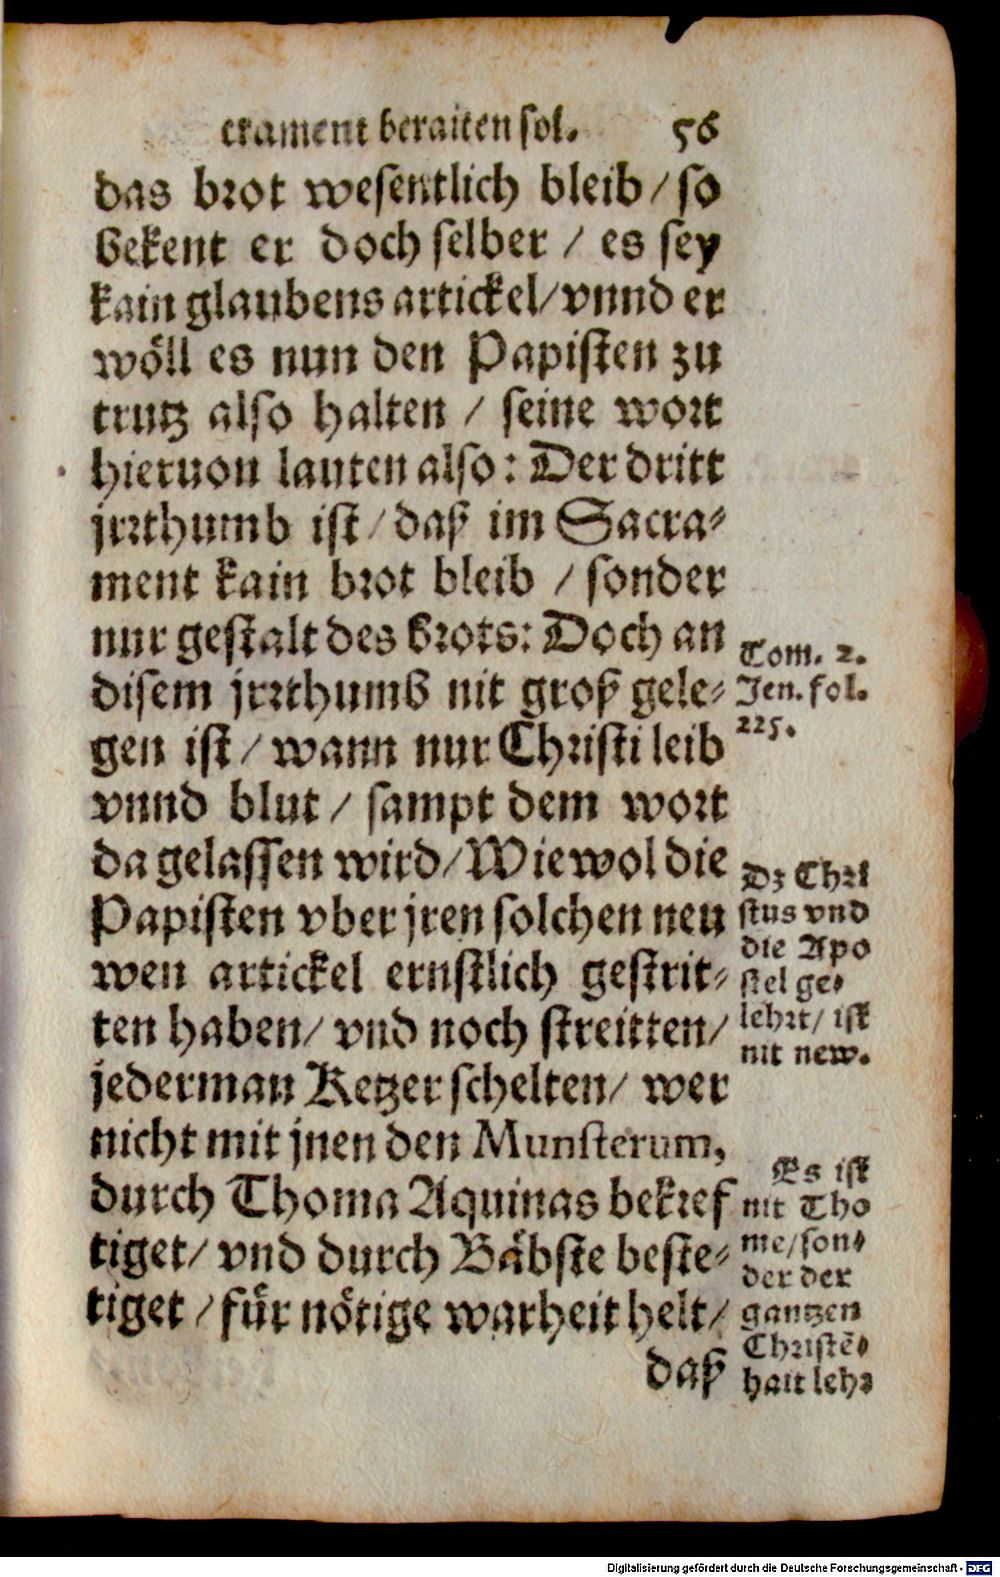 crament beraiten sol. 56
das brot wesentlich bleib / so
bekent er doch selber / es sey
kain glaubens artickel / vnnd er
wöll es nun den Papisten zu
trutz also halten / seine wort
hieruon lauten also: Der dritt
jrrthumb ist / daß im Sacra-
ment kain brot bleib / sonder
nur gestalt des brots: Doch an
disem jrrthumb nit groß gele-
gen ist / wann nur Christi leib
vnnd blut / sampt dem wort
da gelassen wird / Wiewol die
Papisten vber jren solchen neu
wen artickel ernstlich gestrit-
ten haben / vnd noch streitten /
jederman Ketzer schelten / wer
nicht mit jnen den Munsterum,
durch Thoma Aquinas bekref
tiget / vnd durch Bäbste beste-
tiget / für nötige warheit helt /
daß
Tom. 2.
Jen. fol.
225.
Dz Chri
stus vnd
die Apo
stel ge-
lehrt / ist
nit new.
Es ist
nit Tho
me / son-
der der
gantzen
Christē-
hait lehr
Digitalisierung gefördert durch die Deutsche Forschungsgemeinschaft - DFG